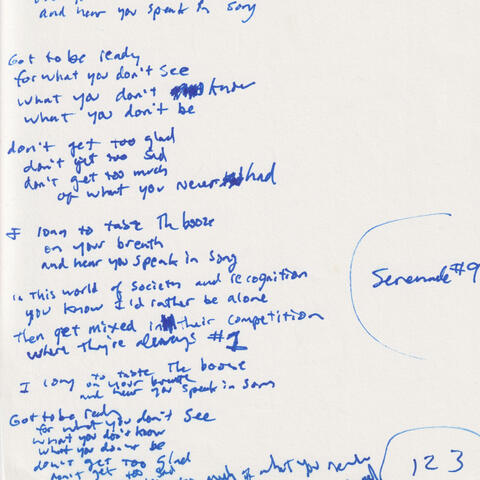 and hear you speak in song
Got to be ready
for what you don't see
what you don't know
what you don't be
don't get too glad
don't get too sad
don't get too much
of what you never had
I long to taste The booze
on your breath
and hear you speak in song
in This world of society and recognition
you know I'd rather be alone
Then get mixed in their competition
where they're always #1
I long to taste The booze
on your breath
and hear you speak in song
Serenade #9
Got to be ready
for what you don't see
what you don't know
what you don't be
don't get too glad
don't get too sad
much of what you
1 2 3